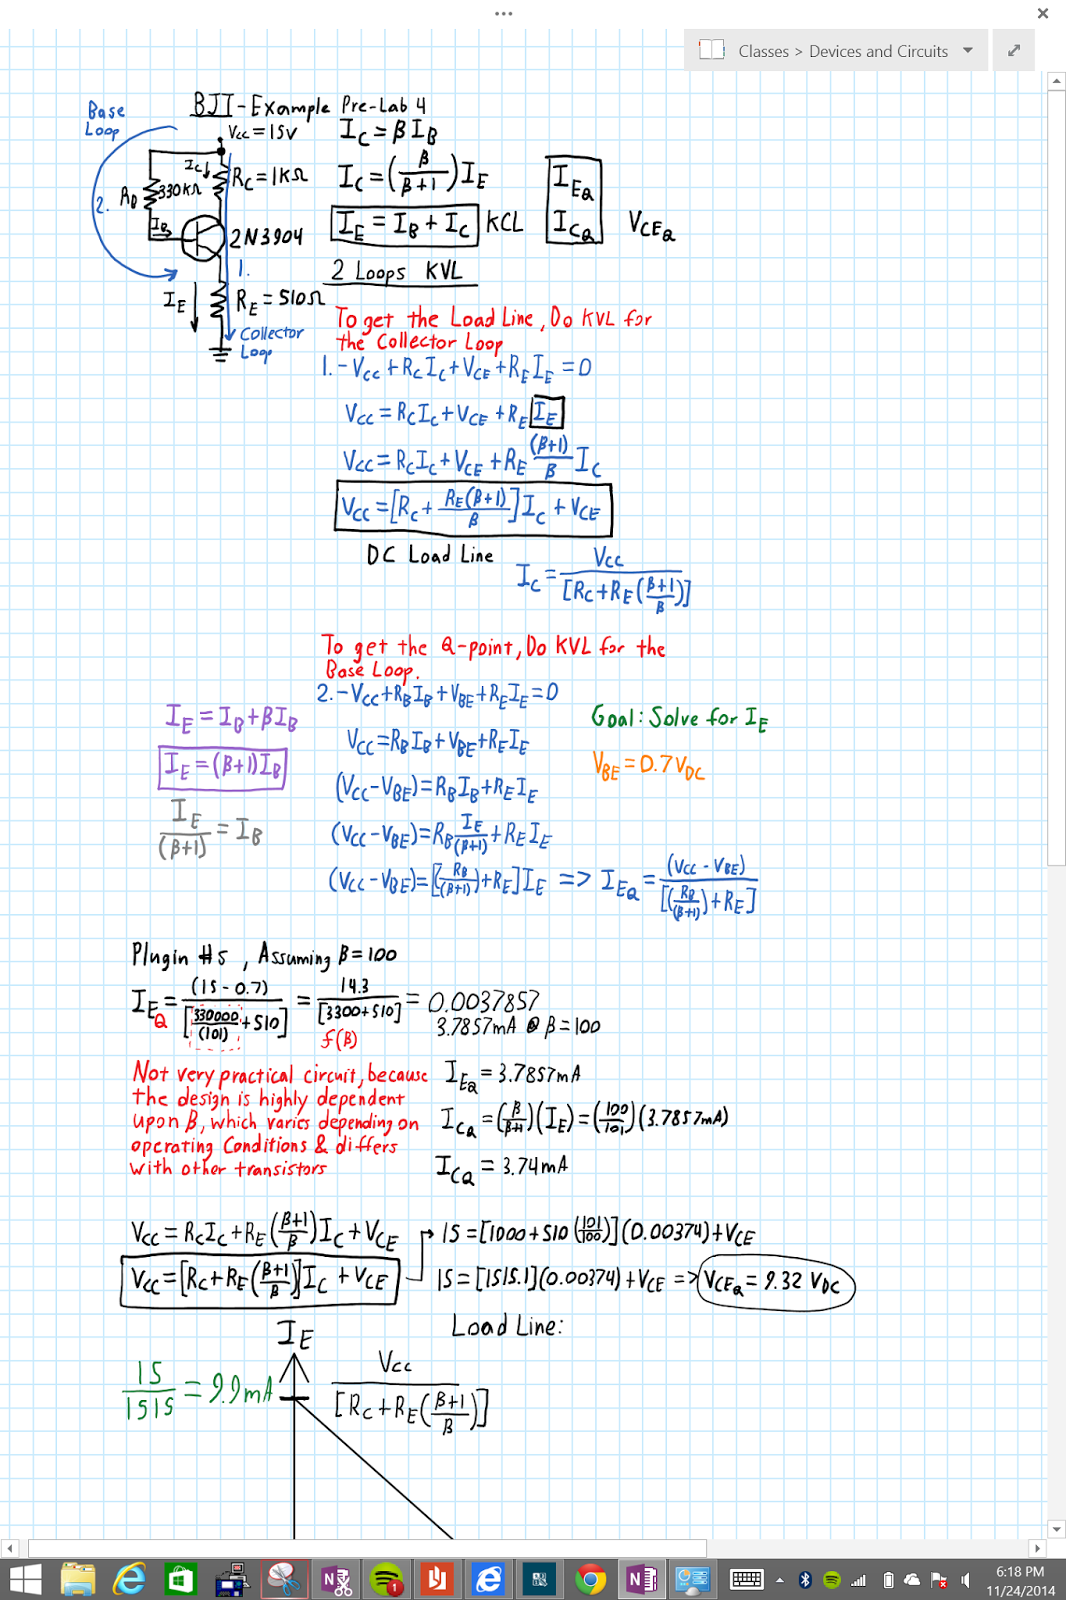 Classes > Devices and Circuits
BJT-Example Pre-Lab 4
Base
Loop
Vcc = 15V
I_C = β I_B
I_C↓
R_C = 1KΩ
I_C = (β/(β+1)) I_E
I_EQ
2.
330KΩ
I_B
2N3904
I_E = I_B + I_C KCL
I_CQ
V_CEQ
1.
2 Loops KVL
I_E
R_E = 510Ω
Collector
Loop
To get the Load Line, Do KVL for
the Collector Loop
1. -Vcc + R_C I_C + V_CE + R_E I_E = 0
Vcc = R_C I_C + V_CE + R_E I_E
Vcc = R_C I_C + V_CE + R_E ((β+1)/β) I_C
V_CC = [R_C + R_E(β+1)/β] I_C + V_CE
DC Load Line
I_C = Vcc/[R_C + R_E((β+1)/β)]
To get the Q-point, Do KVL for the
Base Loop.
2. -Vcc + R_B I_B + V_BE + R_E I_E = 0
I_E = I_B + βI_B
Goal: Solve for I_E
Vcc = R_B I_B + V_BE + R_E I_E
I_E = (β+1)I_B
V_BE = 0.7 V_DC
(Vcc - V_BE) = R_B I_B + R_E I_E
I_E/(β+1) = I_B
(Vcc - V_BE) = R_B I_E/(β+1) + R_E I_E
(Vcc - V_BE) = [(R_B/(β+1)) + R_E] I_E => I_EQ = (Vcc - V_BE)/[(R_B/(β+1)) + R_E]
Plugin #s, Assuming β = 100
I_EQ = (15 - 0.7)/[330000/(101) + 510] = 14.3/[3300 + 510] = 0.0037857
3.7857mA @ β = 100
f(β)
Not very practical circuit, because
the design is highly dependent
upon β, which varies depending on
operating Conditions & differs
with other transistors
I_EQ = 3.7857mA
I_CQ = (β/(β+1))(I_E) = (100/101)(3.7857mA)
I_CQ = 3.74mA
Vcc = R_C I_C + R_E((β+1)/β) I_C + V_CE
15 = [1000 + 510(101/100)](0.00374) + V_CE
Vcc = [R_C + R_E((β+1)/β)] I_C + V_CE
15 = [1515.1](0.00374) + V_CE => V_CEQ = 9.32 V_DC
Load Line:
I_E
15/1515 = 9.9mA
Vcc/[R_C + R_E((β+1)/β)]
6:18 PM
11/24/2014